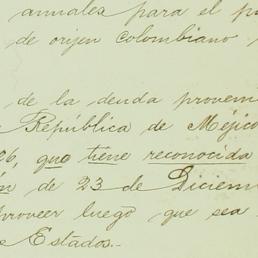 anuales para el
de orijen colombiano
de la deuda
República de Méjico
26, que tiene reconocida
de 23 de Diciem
proveer luego que sea
Estados.